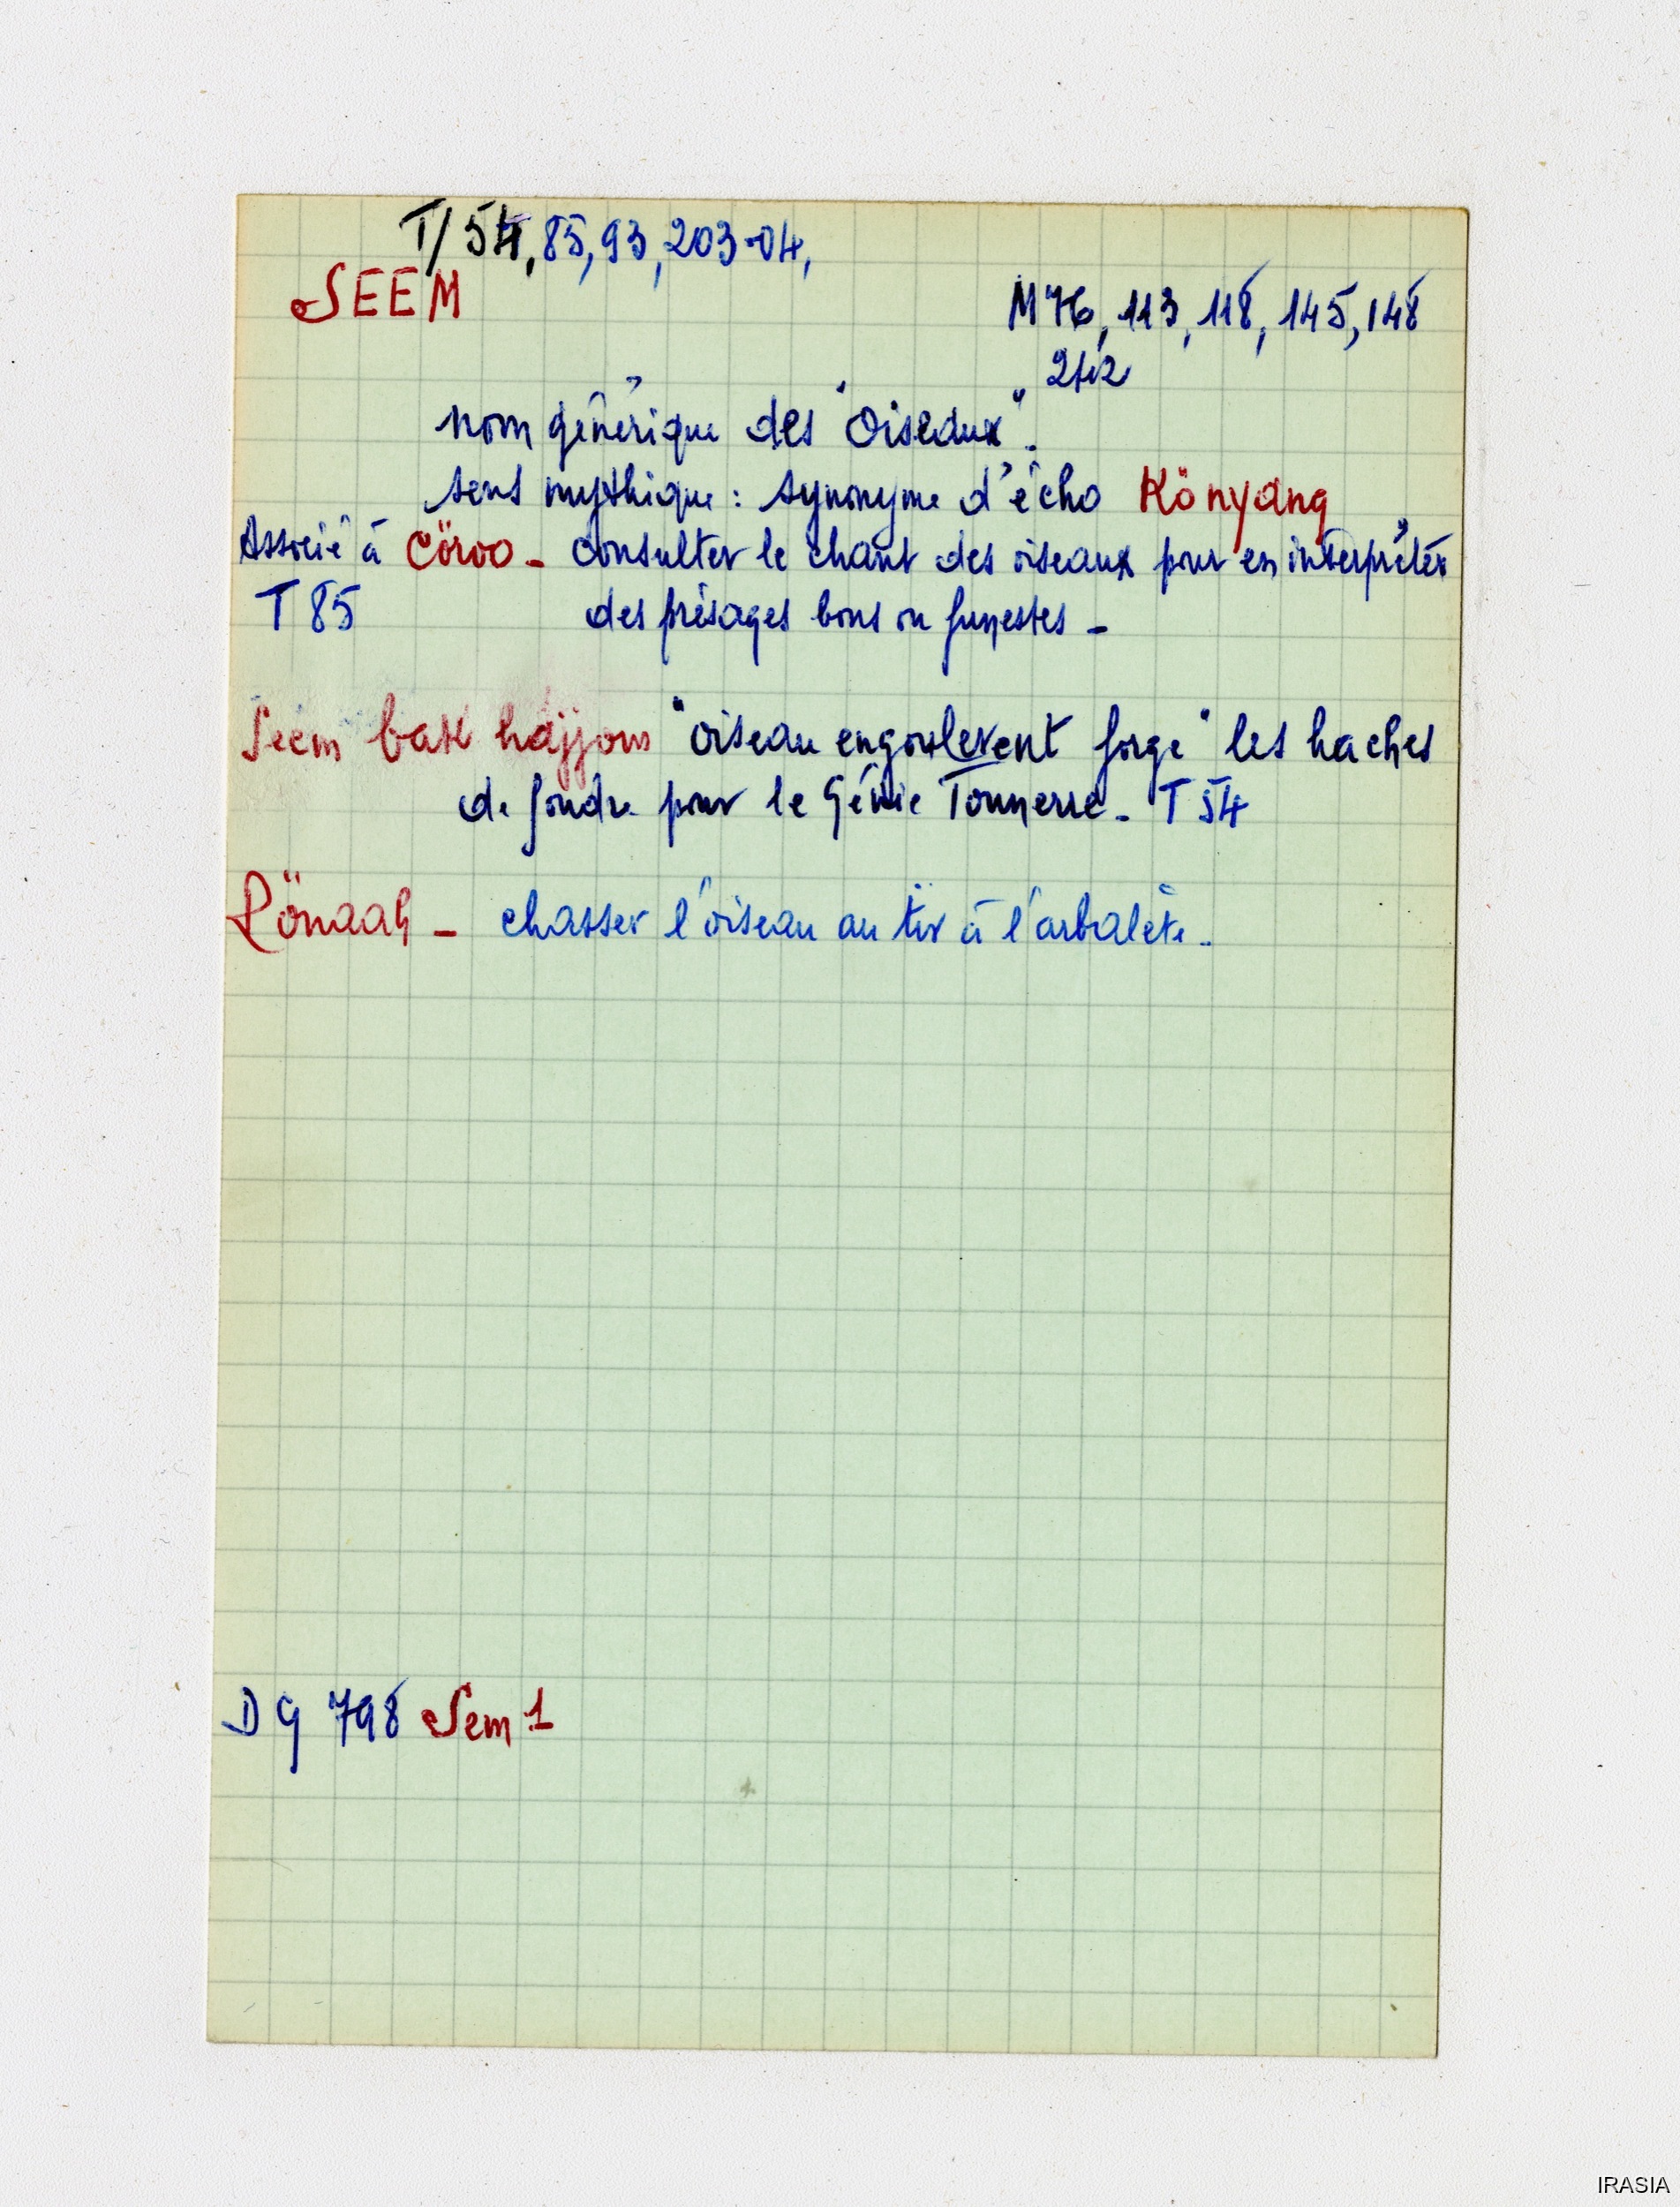 T/54, 85, 93, 203-04,
SEEM
M 76, 113, 118, 145, 148
212
nom générique des "oiseaux".
sens mythique : synonyme d'écho Könyang
Associé à Cöroo - consulter le chant des oiseaux pour en interpréter
T 85 des présages bons ou funestes -
Seem bak hajjou "oiseau engoulevent forge" les haches
de foudre pour le Génie Tonnerre - T 54
Pönaah - chasser l'oiseau au tir à l'arbalète -
DG 798 Sem 1
IRASIA